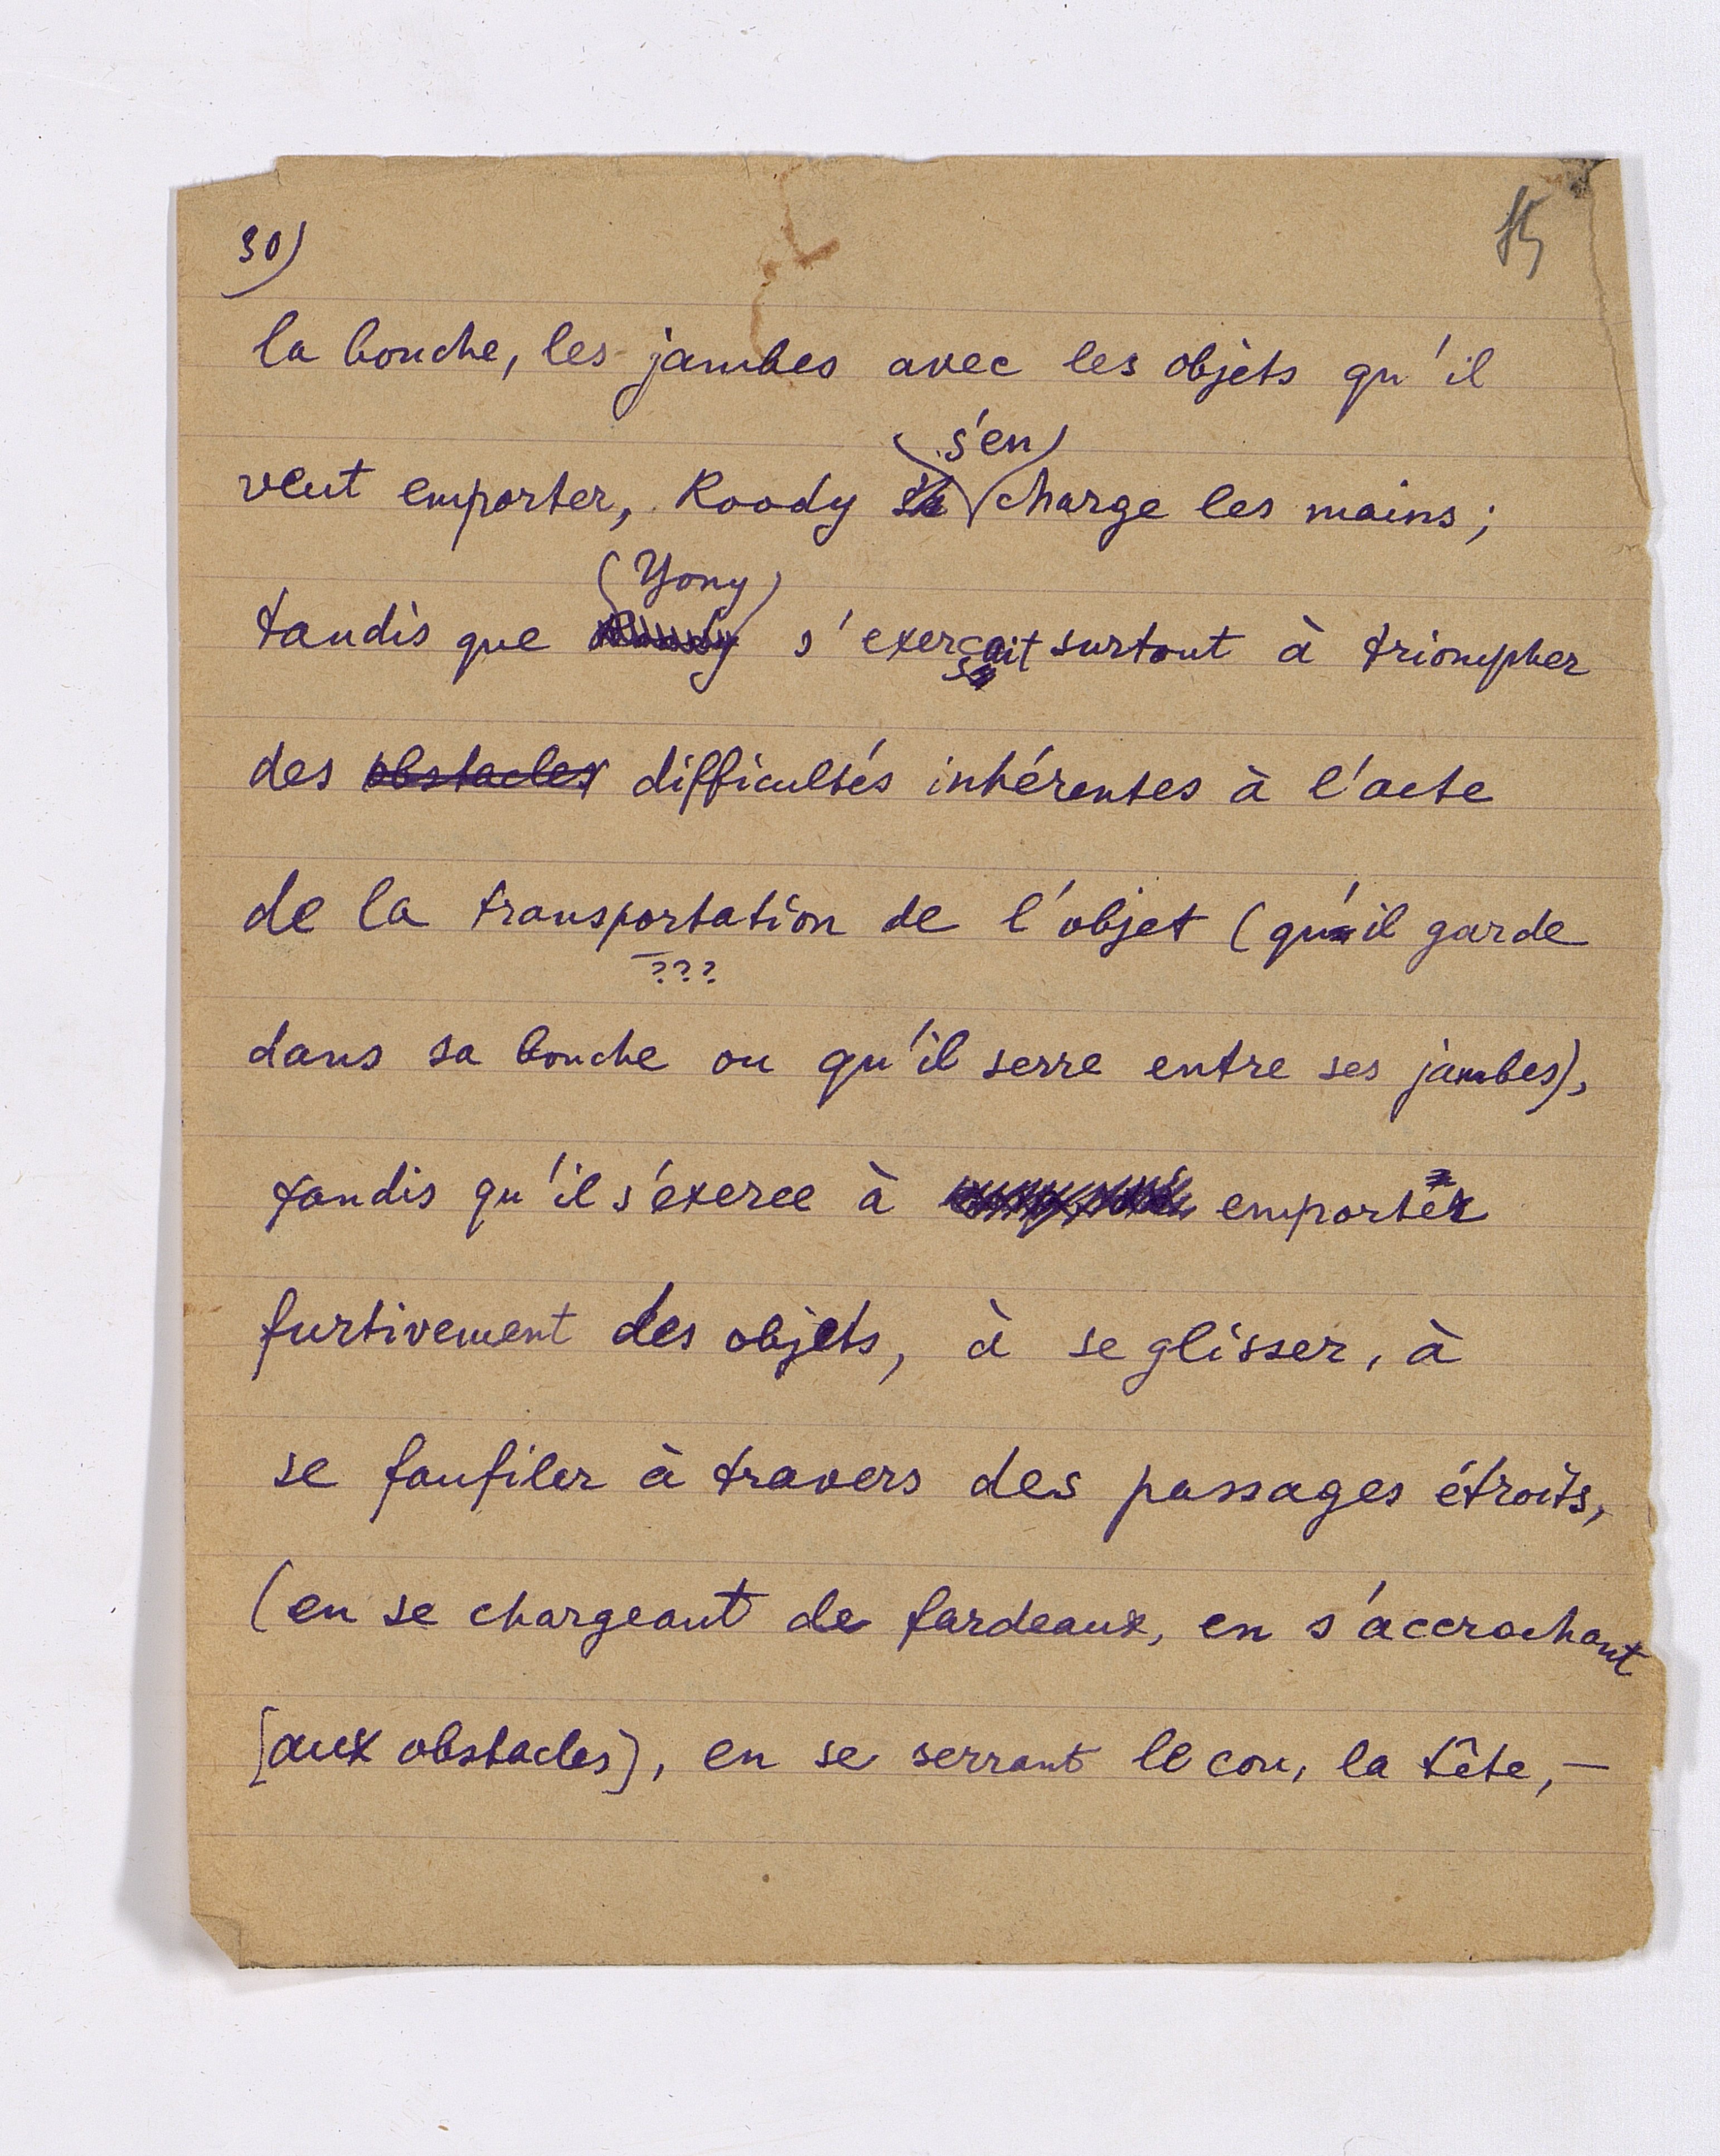 30)
15
la bouche, les jambes avec les objets qu'il
s'en
veut emporter, Roody charge les mains;
(Yony)
tandis que s'exerçait surtout à triompher
des obstacles difficultés inhérentes à l'acte
de la transportation de l'objet (qu'il garde
???
dans sa bouche ou qu'il serre entre ses jambes),
tandis qu'il s'exerce à emporter
furtivement des objets, à se glisser, à
se faufiler à travers des passages étroits,
(en se chargeant de fardeaux, en s'accrochant
[aux obstacles], en se serrant le cou, la tête, —